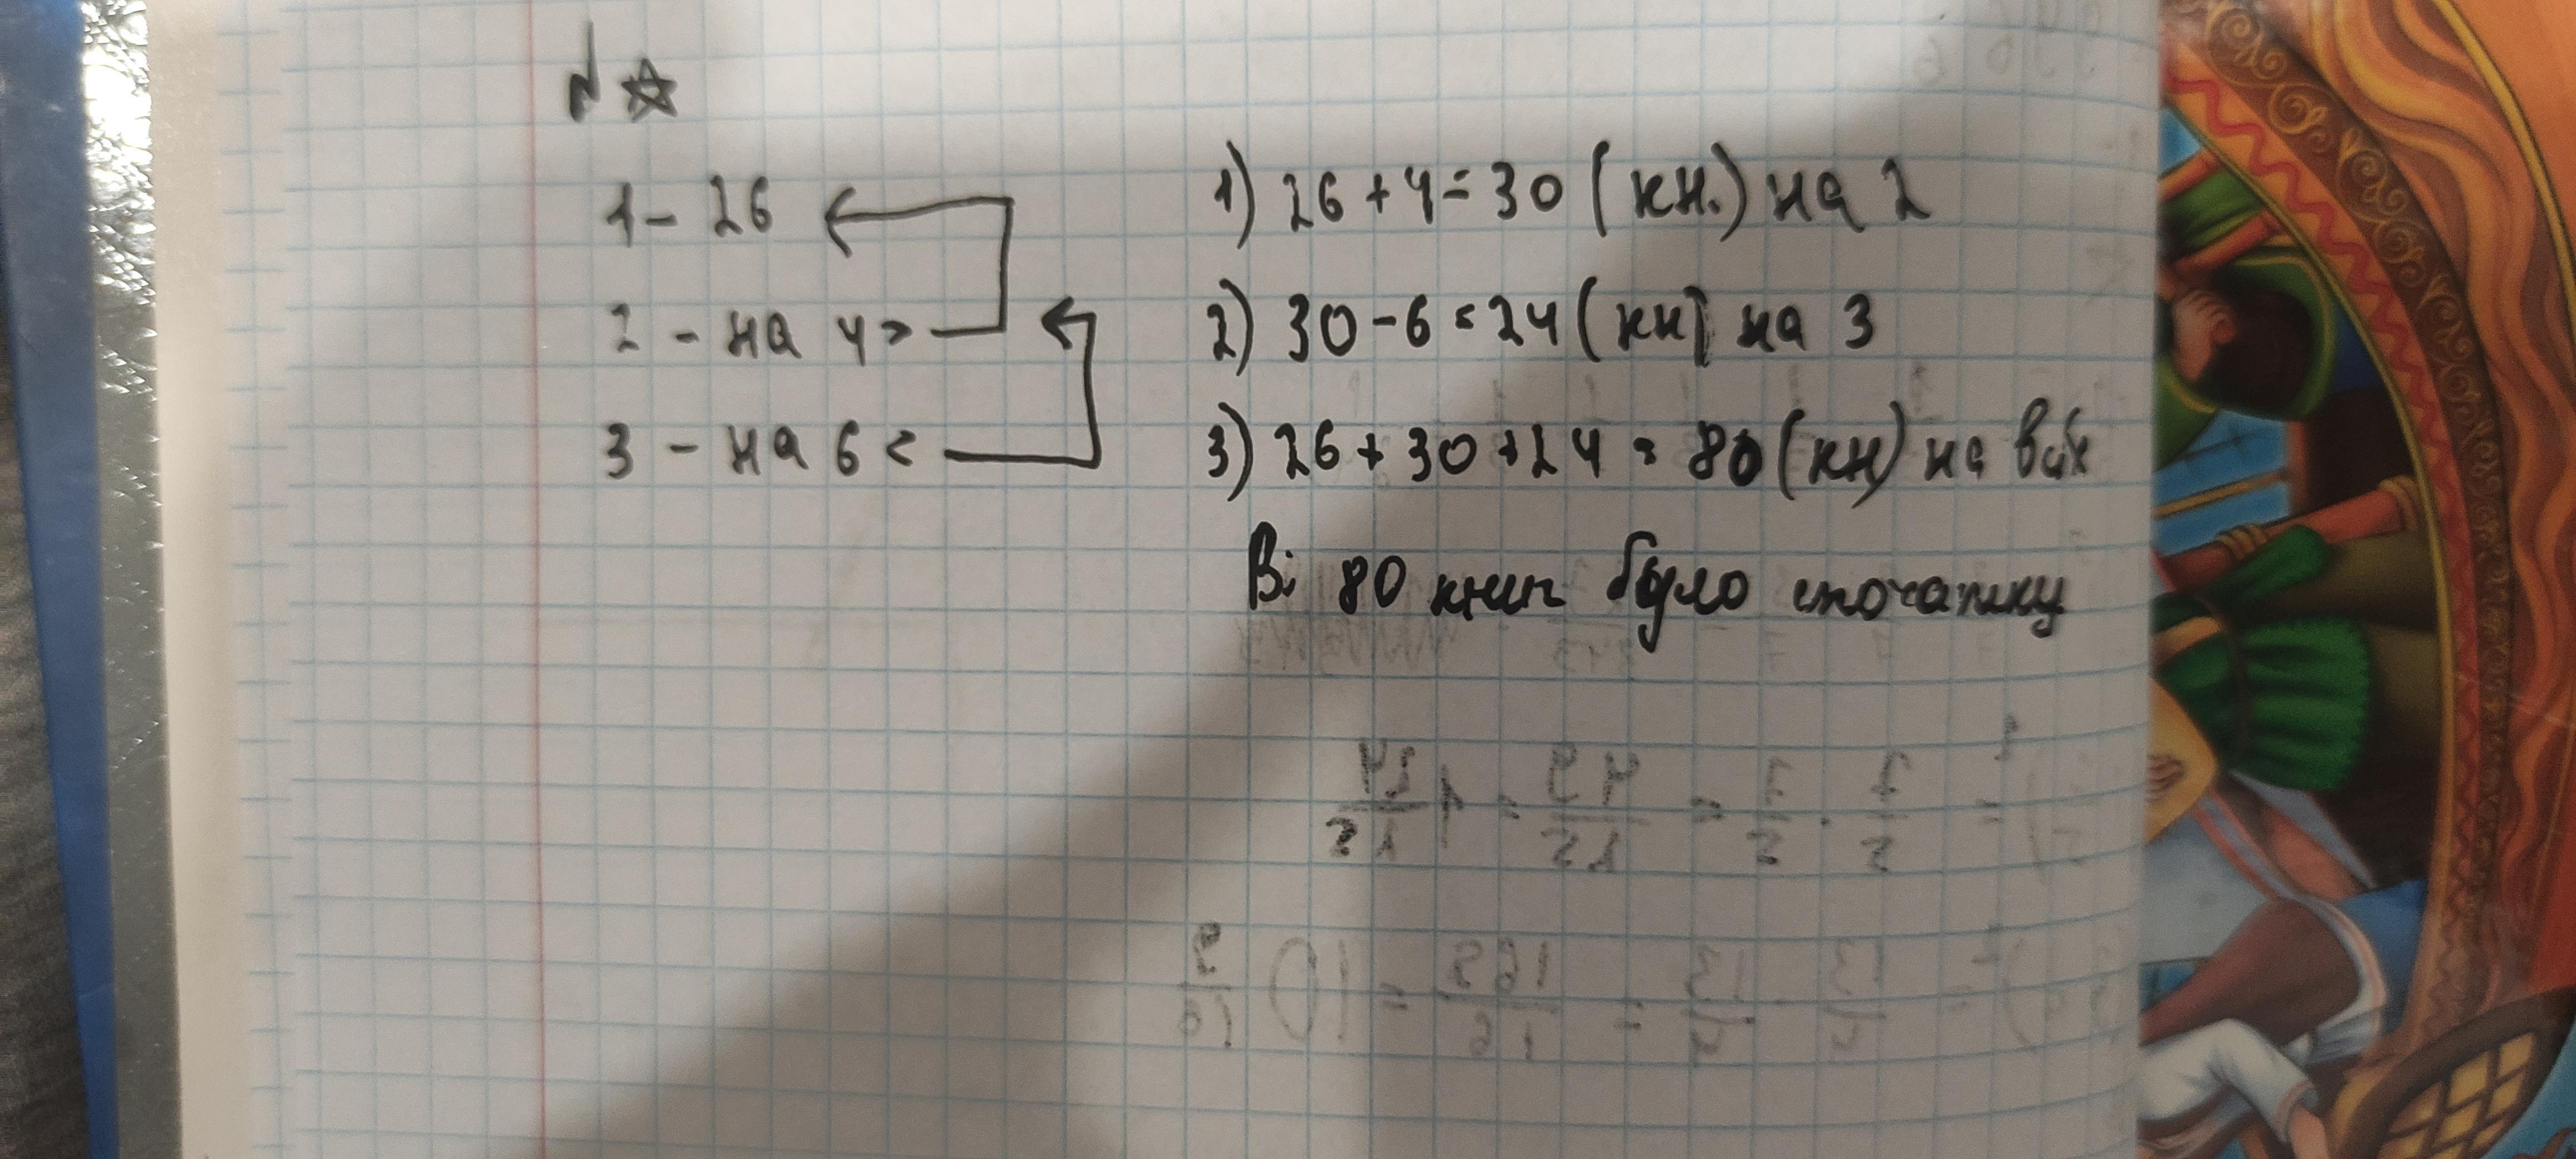 N ☆
1 - 26
2 - на 4 >
3 - на 6 <
1) 26 + 4 = 30 (кн.) на 2
2) 30 - 6 = 24 (кн) на 3
3) 26 + 30 + 24 = 80 (кн) на всіх
В: 80 книг було спочатку